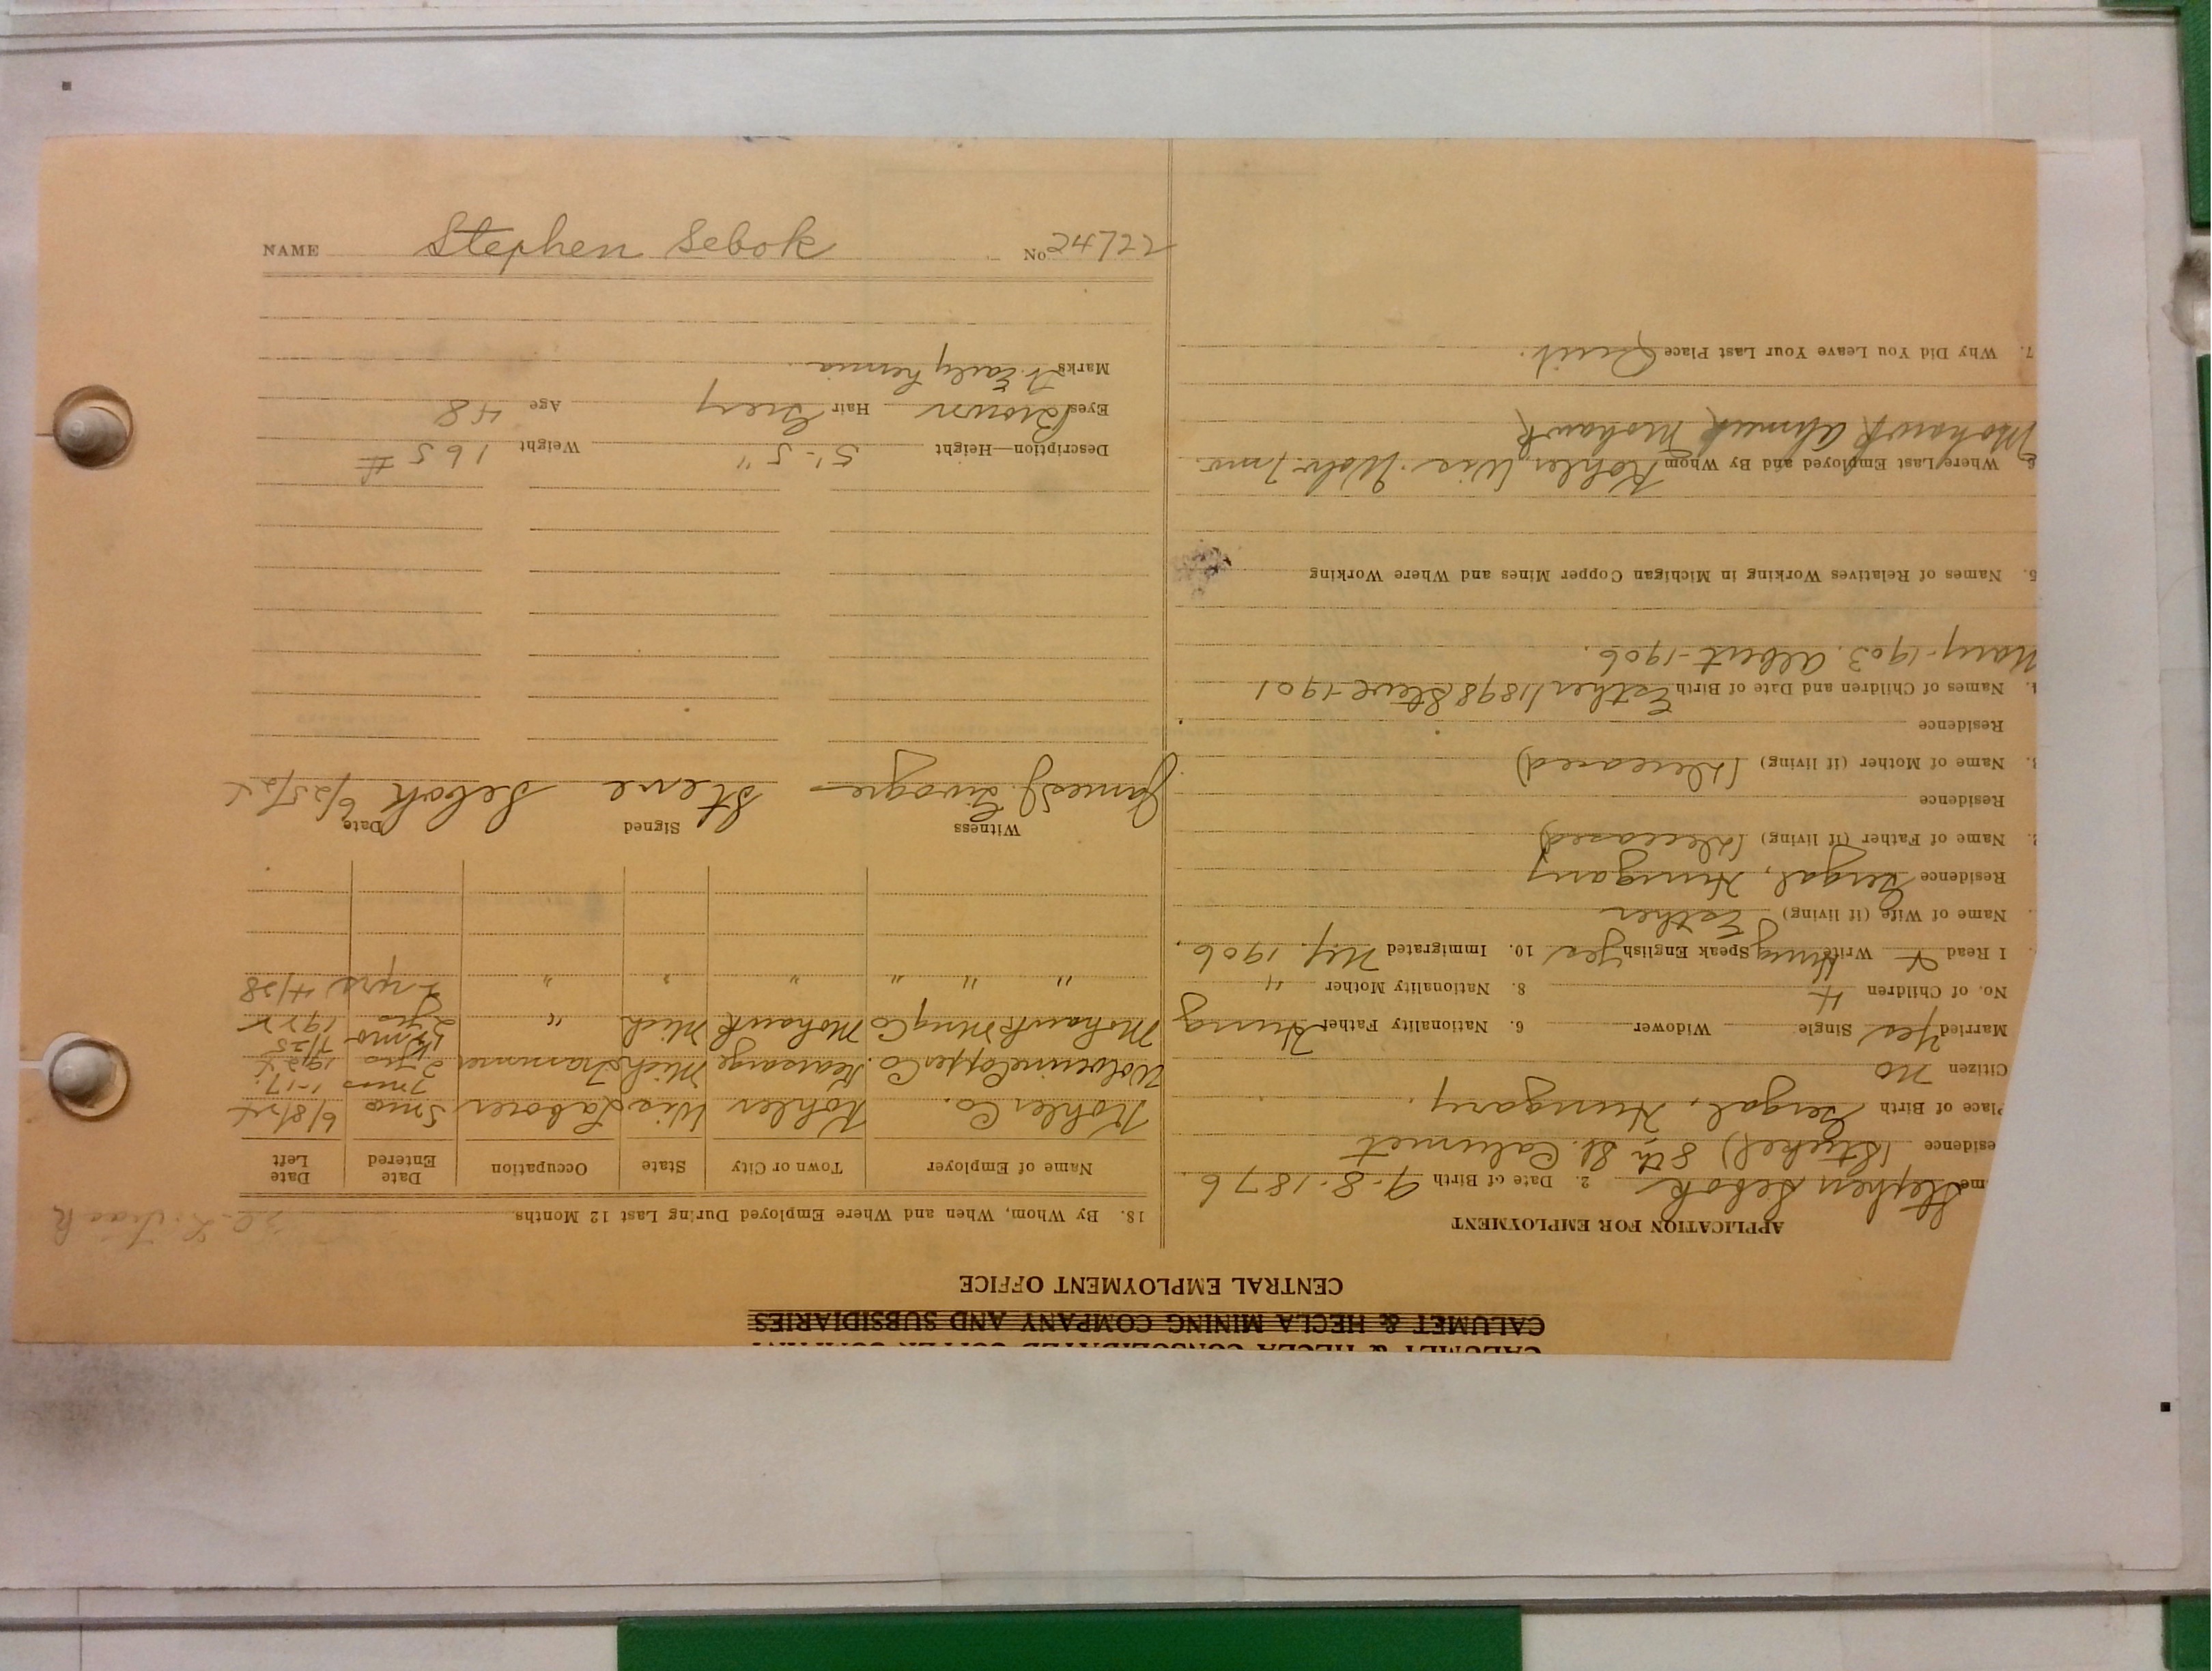 NAME Stephen Sebok No 24722
CALUMET & HECLA CONSOLIDATED COPPER COMPANY
CALUMET & HECLA MINING COMPANY AND SUBSIDIARIES
CENTRAL EMPLOYMENT OFFICE
APPLICATION FOR EMPLOYMENT
me Stephen Sebok 2. Date of Birth 9-8-1876
esidence (Steckel) 8th St. Calumet
Place of Birth Gergal, Hungary.
Citizen no
Married Yes Single Widower 6. Nationality Father Hung
No. of Children 4 8. Nationality Mother "
I Read & Write Hung Speak English yes 10. Immigrated N.Y. 1906.
Name of Wife (if living) Esther
Residence Gergal, Hungary
Name of Father (if living) (Deceased)
Residence
Name of Mother (if living) (Deceased)
Residence
Names of Children and Date of Birth Esther 1898 Steve-1901
Mary-1903. Albert-1906.
5. Names of Relatives Working in Michigan Copper Mines and Where Working
6. Where Last Employed and By Whom Kohler, Wis. Wolv.
Mohawk Ahmeek Mohawk
7. Why Did You Leave Your Last Place Quit.
18. By Whom, When and Where Employed During Last 12 Months
Name of Employer Town or City State Occupation Date Entered Date Left
Kohler Co. Kohler Wis Laborer 3 mo 6/8/24
Wolverine Copper Co. Kearsarge Mich Trammer 2 yrs 1924
Mohawk Ming Co Mohawk Mich " 2 yrs 1922
" " " " " " 2 yrs
Witness Signed Date
James J. Steve Sebok 6/25/24
Description—Height 5'-5" Weight 165 #
Eyes Brown Hair Grey Age 48
Marks Early hernia